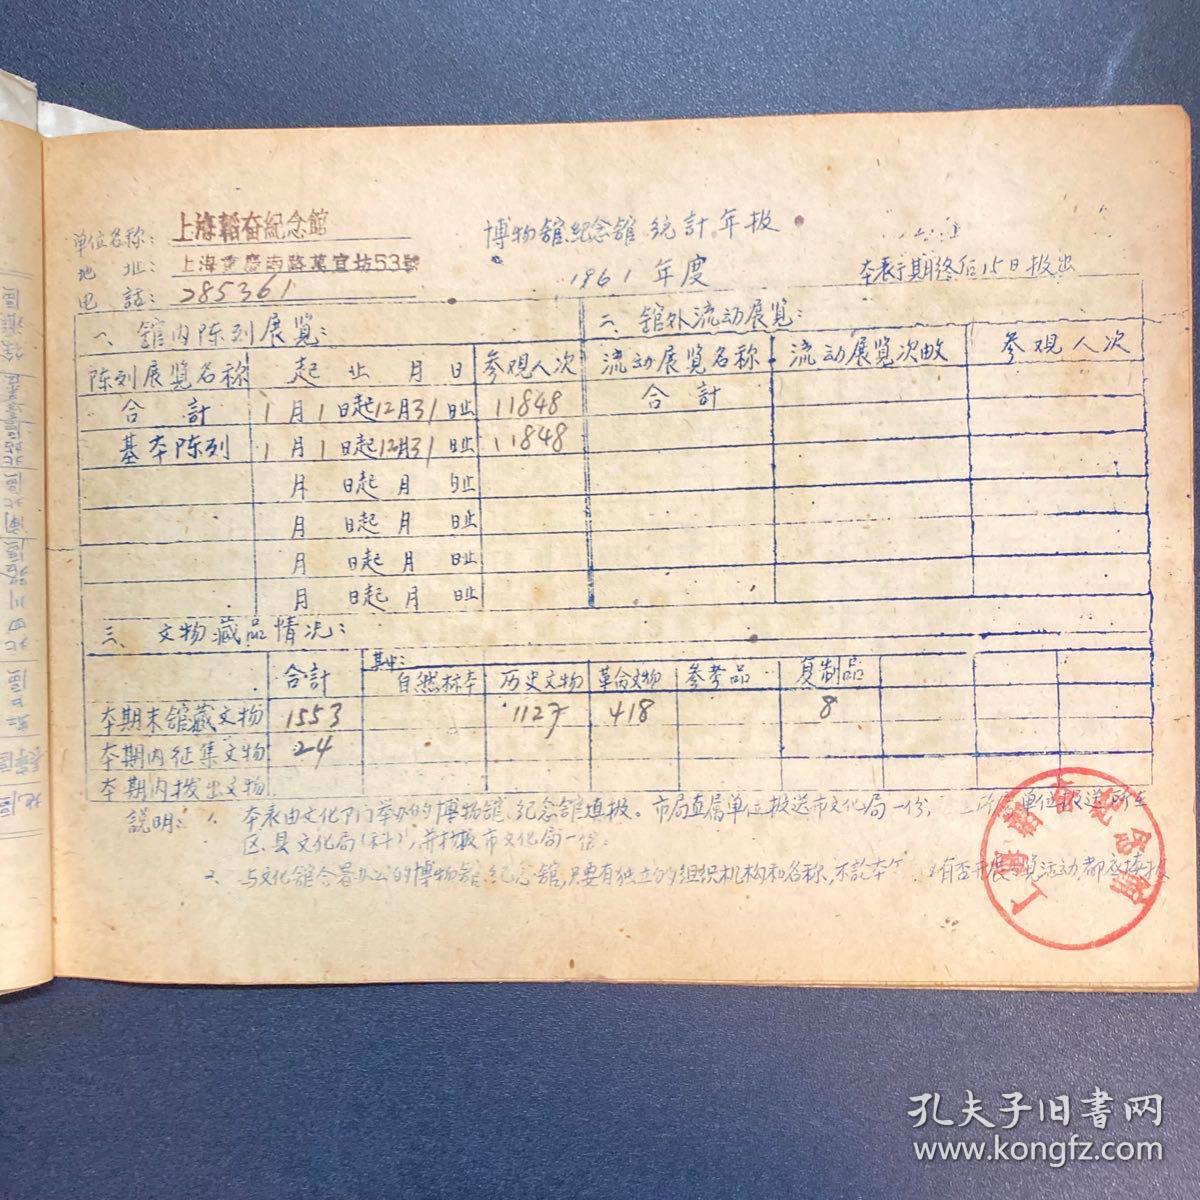 博物舘紀念舘統計年报
单位名称：上海韜奋紀念館
地　址：上海重慶南路萬宜坊53號
电　話：285361
1961年度
本表于期終后15日报出
一、舘内陈列展览：
二、舘外流动展览：
陈列展览名称 起止月日 参观人次 流动展览名称 流动展览次数 参观人次
合計 1月1日起12月31日止 11848 合計
基本陈列 1月1日起12月31日止 11848
月 日起 月 日止
月 日起 月 日止
月 日起 月 日止
月 日起 月 日止
三、文物藏品情况：
合計 其中：自然标本 历史文物 革命文物 参考品 复制品
本期末舘藏文物 1553 1127 418 8
本期内征集文物 24
本期内拨出文物
説明：1. 本表由文化部门举办的博物舘、紀念舘填报。市局直属单位报送市文化局一份，单位报送所在
区、县文化局(科)，并抄报市文化局一份。
2. 与文化舘合署办公的博物舘、紀念舘，只要有独立的组织机构和名称，不論有否开展展览活动，都应填报
上海韜奋紀念館
孔夫子旧書网
www.kongfz.com